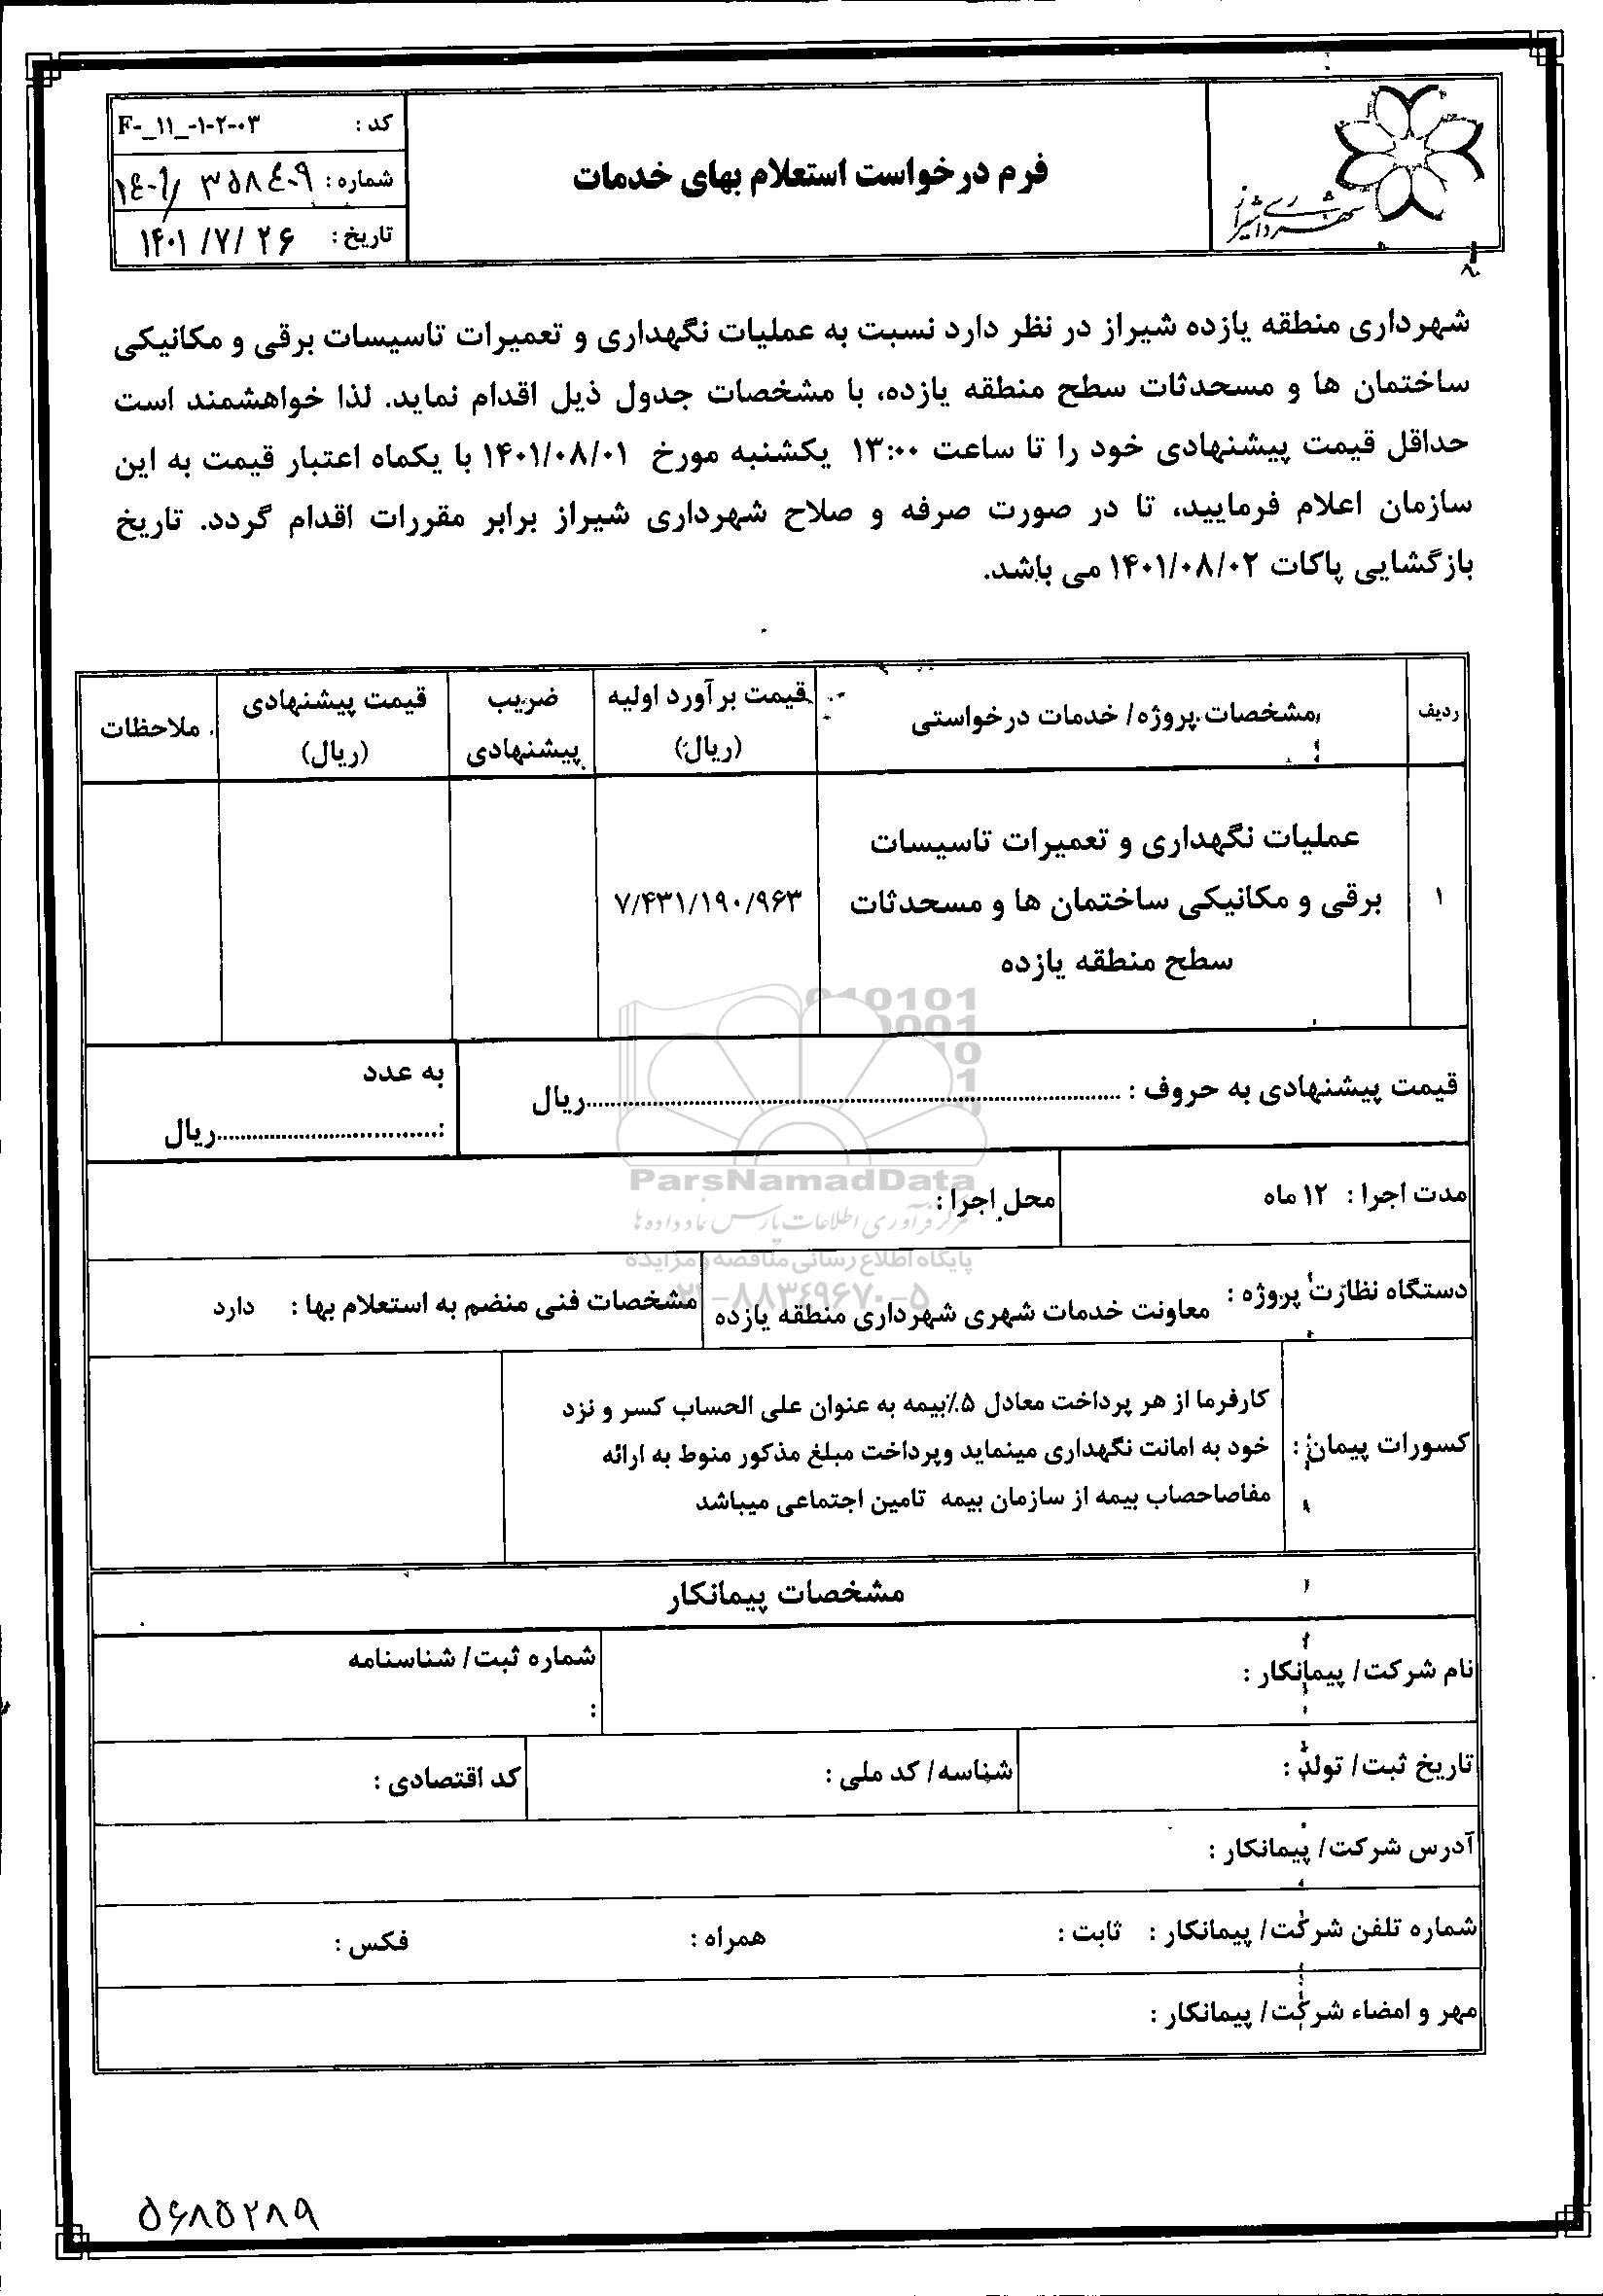 شهرداری شیراز
فرم درخواست استعلام بهای خدمات
کد : F-_۱۱_-۱-۲-۰۳
شماره : ۱۴۰۱/ ۳۵۸۴۰۹
تاریخ : ۱۴۰۱/۷/۲۶
شهرداری منطقه یازده شیراز در نظر دارد نسبت به عملیات نگهداری و تعمیرات تاسیسات برقی و مکانیکی
ساختمان ها و مسحدثات سطح منطقه یازده، با مشخصات جدول ذیل اقدام نماید. لذا خواهشمند است
حداقل قیمت پیشنهادی خود را تا ساعت ۱۳:۰۰ یکشنبه مورخ ۱۴۰۱/۰۸/۰۱ با یکماه اعتبار قیمت به این
سازمان اعلام فرمایید، تا در صورت صرفه و صلاح شهرداری شیراز برابر مقررات اقدام گردد. تاریخ
بازگشایی پاکات ۱۴۰۱/۰۸/۰۲ می باشد.
ردیف
مشخصات پروژه/ خدمات درخواستی
قیمت برآورد اولیه
(ریال)
ضریب
پیشنهادی
قیمت پیشنهادی
(ریال)
ملاحظات
۱
عملیات نگهداری و تعمیرات تاسیسات
برقی و مکانیکی ساختمان ها و مسحدثات
سطح منطقه یازده
۷/۴۳۱/۱۹۰/۹۶۳
قیمت پیشنهادی به حروف : ..........ریال
به عدد
:..........ریال
مدت اجرا : ۱۲ ماه
محل اجرا :
ParsNamadData
مرکز فرآوری اطلاعات پارس نماد داده ها
پایگاه اطلاع رسانی مناقصه و مزایده
۰۲۱-۸۸۳۴۹۶۷۰-۵
دستگاه نظارت پروژه : معاونت خدمات شهری شهرداری منطقه یازده
مشخصات فنی منضم به استعلام بها : دارد
کسورات پیمان :
کارفرما از هر پرداخت معادل ۵٪بیمه به عنوان علی الحساب کسر و نزد
خود به امانت نگهداری مینماید وپرداخت مبلغ مذکور منوط به ارائه
مفاصاحصاب بیمه از سازمان بیمه تامین اجتماعی میباشد
مشخصات پیمانکار
نام شرکت/ پیمانکار :
شماره ثبت/ شناسنامه
:
تاریخ ثبت/ تولد :
شناسه/ کد ملی :
کد اقتصادی :
آدرس شرکت/ پیمانکار :
شماره تلفن شرکت/ پیمانکار : ثابت : همراه : فکس :
مهر و امضاء شرکت/ پیمانکار :
۵۶۸۵۲۸۹